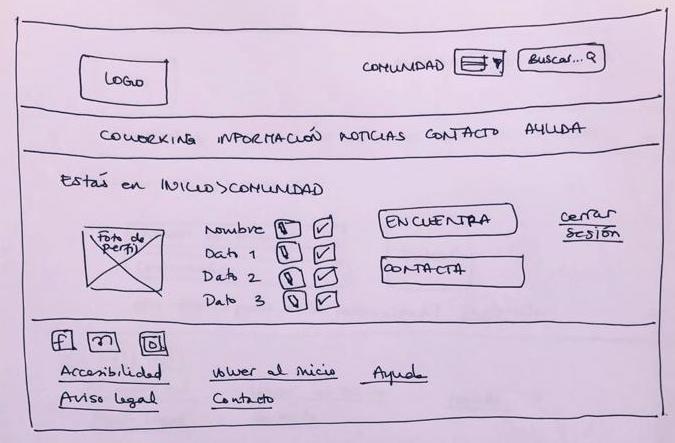 LOGO
COMUNIDAD
Buscar...
COWORKING INFORMACIÓN NOTICIAS CONTACTO AYUDA
Estás en INICIO>COMUNIDAD
Foto de
perfil
Nombre
Dato 1
Dato 2
Dato 3
ENCUENTRA
CONTACTA
cerrar
sesión
f
Accesibilidad volver al inicio Ayuda
Aviso legal Contacto